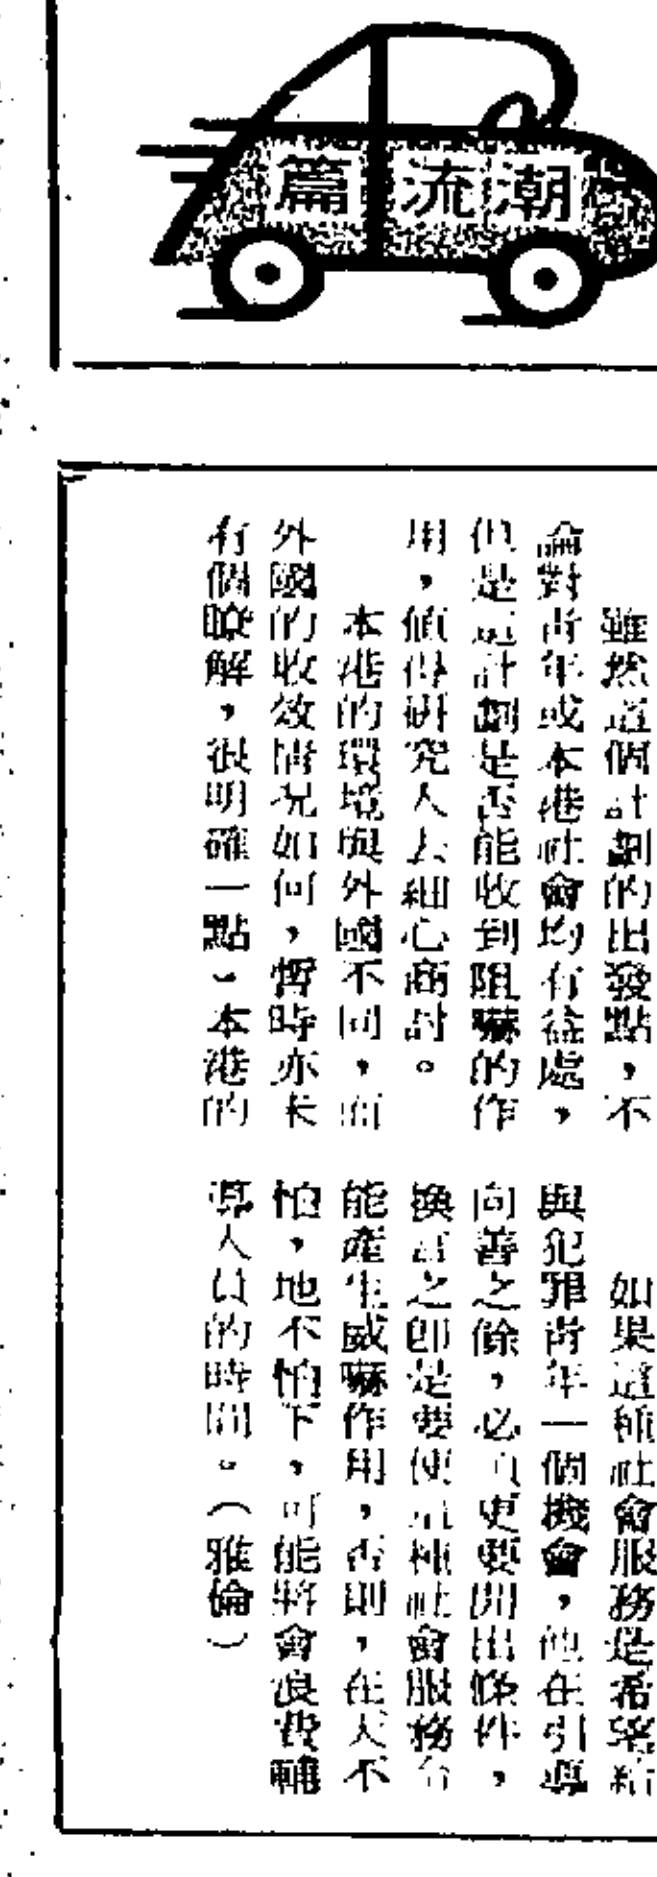 潮流篇
雖然這個計劃的出發點，不
論對青年或本港社會均有益處，
但是這計劃是否能收到阻嚇的作
用，值得研究人去細心商討。
本港的環境與外國不同，而
外國的收效情況如何，暫時亦未
有個瞭解，很明確一點，本港的
如果這種社會服務是希望給
與犯罪青年一個機會，他在引導
向善之餘，必須更要開出條件，
換言之即是要使這種社會服務台
能產生威嚇作用，否則，在天不
怕，地不怕下，可能將會浪費輔
導人員的時間。（雅倫）